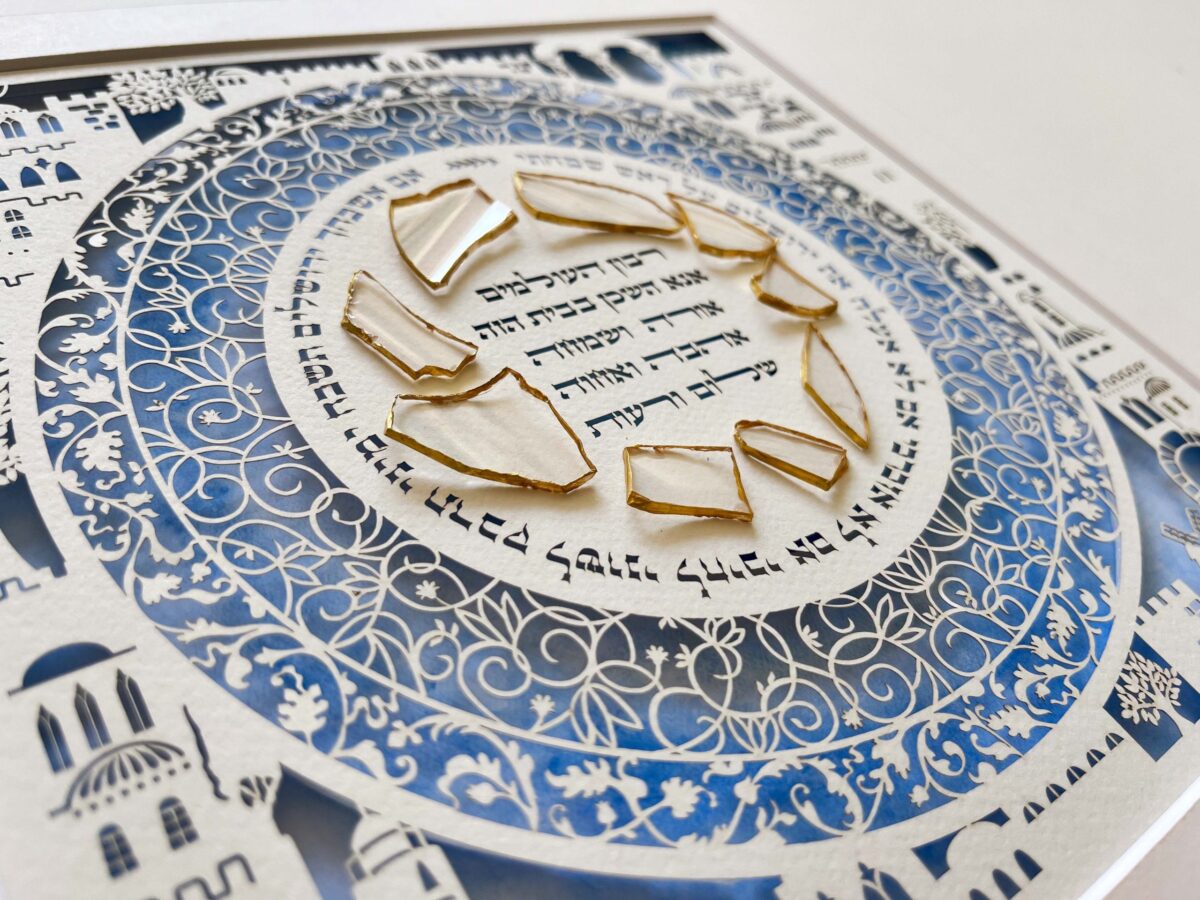 אם אשכחך ירושלים תשכח ימיני תדבק לשוני לחיכי אם לא אזכרכי אם לא אעלה את ירושלים על ראש שמחתי
רבון העולמים
אנא השכן בבית הזה
אורה ושמחה
אהבה ואחוה
שלום ורעות